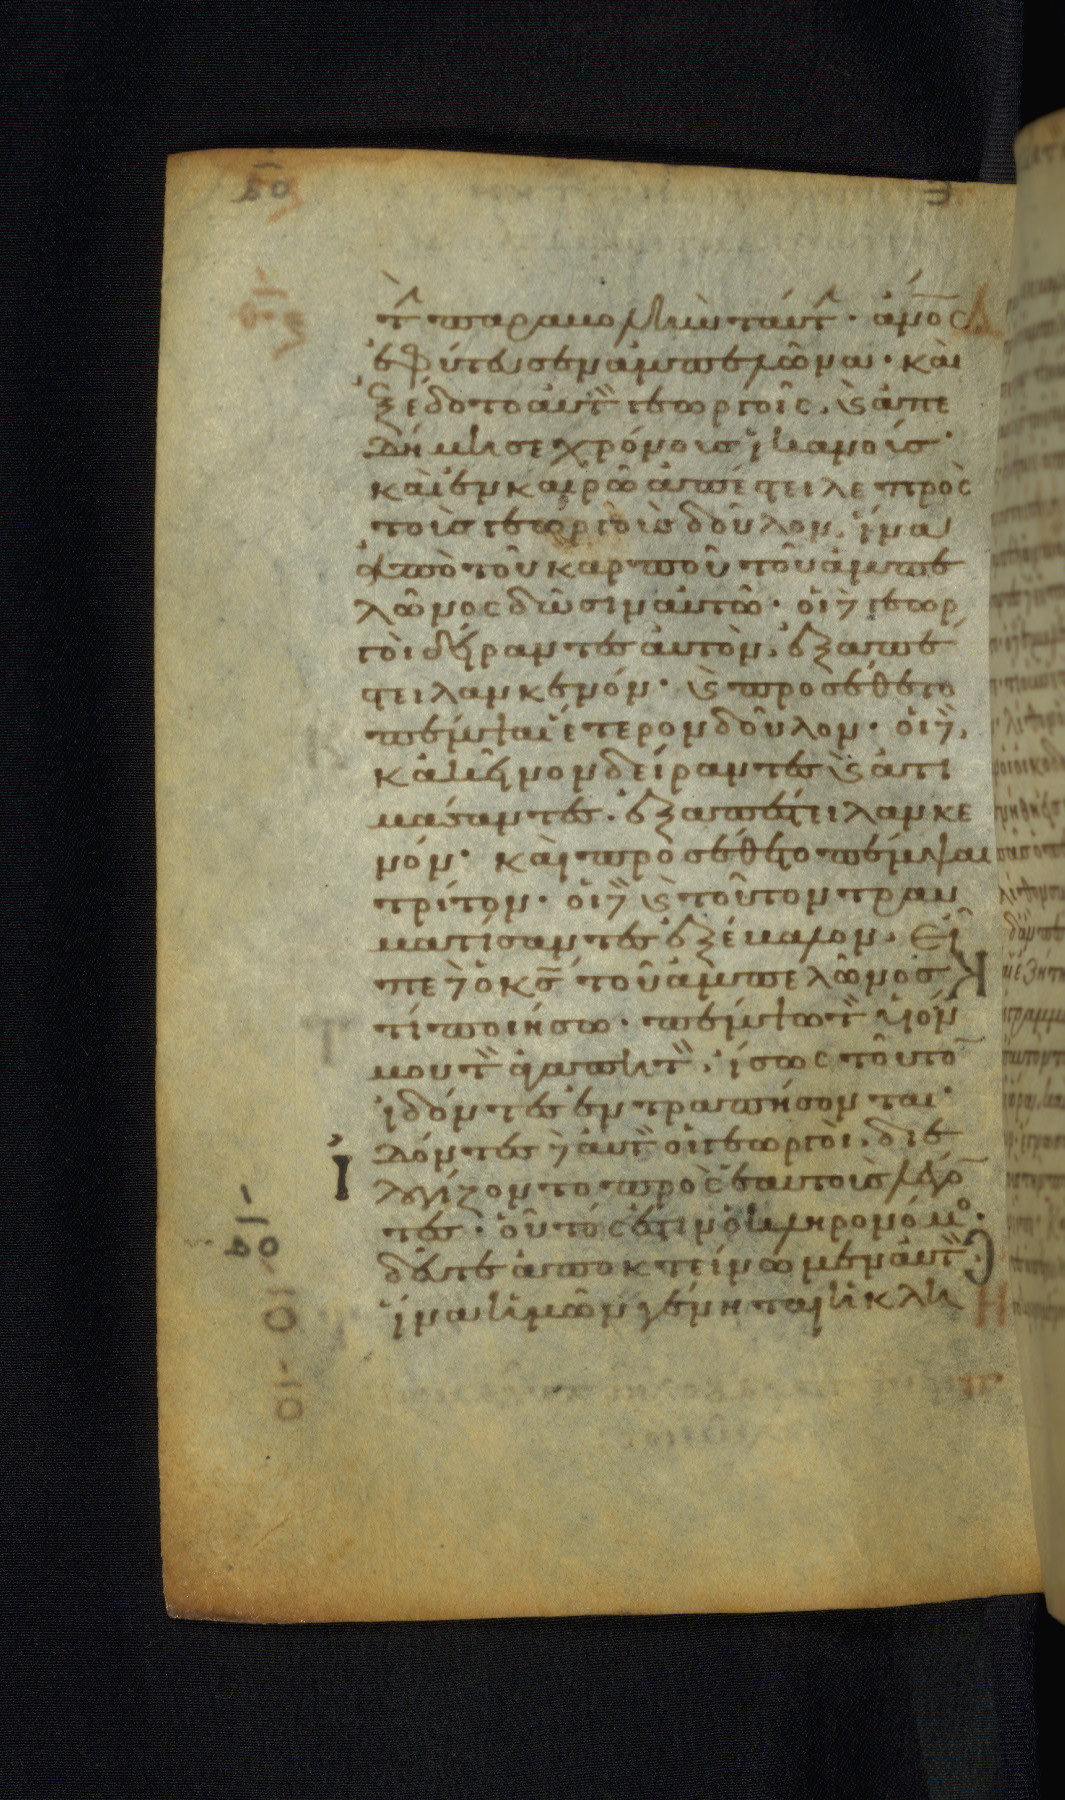 τ παραβολὴν ταύτ· ἄν̅ος
ἐφύτευσεν ἀμπελῶνα· καὶ
ἐξέδοτο αὐτ γεωργοῖς, ϗ ἀπε
δήμησε χρόνους ἱκανούς·
καὶ ἐν καιρῶ ἀπέστειλε πρὸς
τοὺς γεωργοὺς δοῦλον, ἵνα
ἀπὸ τοῦ καρποῦ τοῦ ἀμπε
λῶνος δῶσιν αὐτῶ· οἱ δὲ γεωρ
γοὶ δείραντες αὐτὸν, ἐξαπέ
στειλαν κενόν· ϗ προσέθετο
πέμψαι ἕτερον δοῦλον· οἱ δὲ,
κἀκεῖνον δείραντες ϗ ἀτι
μάσαντες· ἐξαπέστειλαν κε
νόν· καὶ προσέθετο πέμψαι
τρίτον· οἱ δὲ ϗ τοῦτον τραυ
ματίσαντες ἐξέβαλον. Εἶ
πε δὲ ὁ κς̅ τοῦ ἀμπελῶνος
τί ποιήσω· πέμψω τ υἱόν
μου τ ἀγαπητ, ἴσως τοῦτο̅
ἰδόντες ἐντραπήσονται·
Ἰδόντες δὲ αὐτ οἱ γεωργοὶ, διε
λογίζοντο πρὸς ἑαυτοὺς λέγο̅
τες· οὗτός ἐστιν ὁ κληρονόμο·
δεῦτε ἀποκτείνωμεν αὐτ·
ἵνα ἡμῶν γένηται ἡ κλη